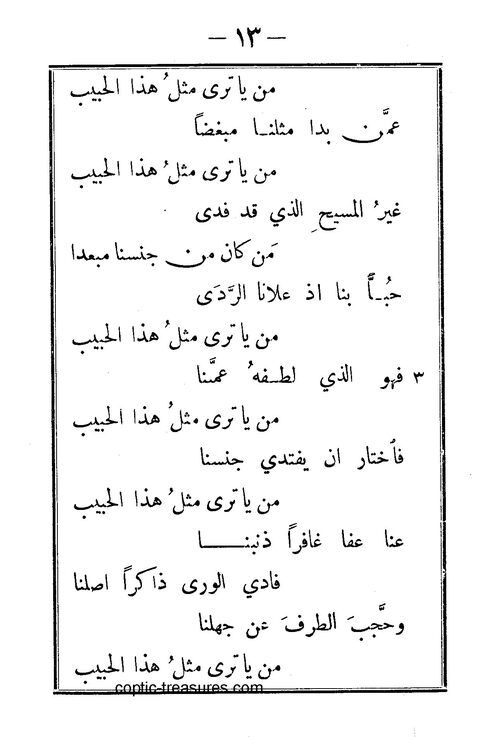 — ١٣ —
من يا ترى مثلُ هذا الحبيب
عمَّن بدا مثلنا مبغضاً
من يا ترى مثلُ هذا الحبيب
غيرُ المسيحِ الذي قد فدى
مَن كان من جنسنا مبعدا
حُبـاًّ بنا اذ علانا الرَّدَى
من يا ترى مثلُ هذا الحبيب
٣ فهو الذي لطفهُ عمَّنا
من يا ترى مثلُ هذا الحبيب
فاَختار ان يفتدي جنسنا
من يا ترى مثلُ هذا الحبيب
عنا عفا غافراً ذنبنــــا
فادي الورى ذاكراً اصلنا
وحَّجبَ الطرفَ عن جهلنا
من يا ترى مثلُ هذا الحبيب
coptic-treasures.com